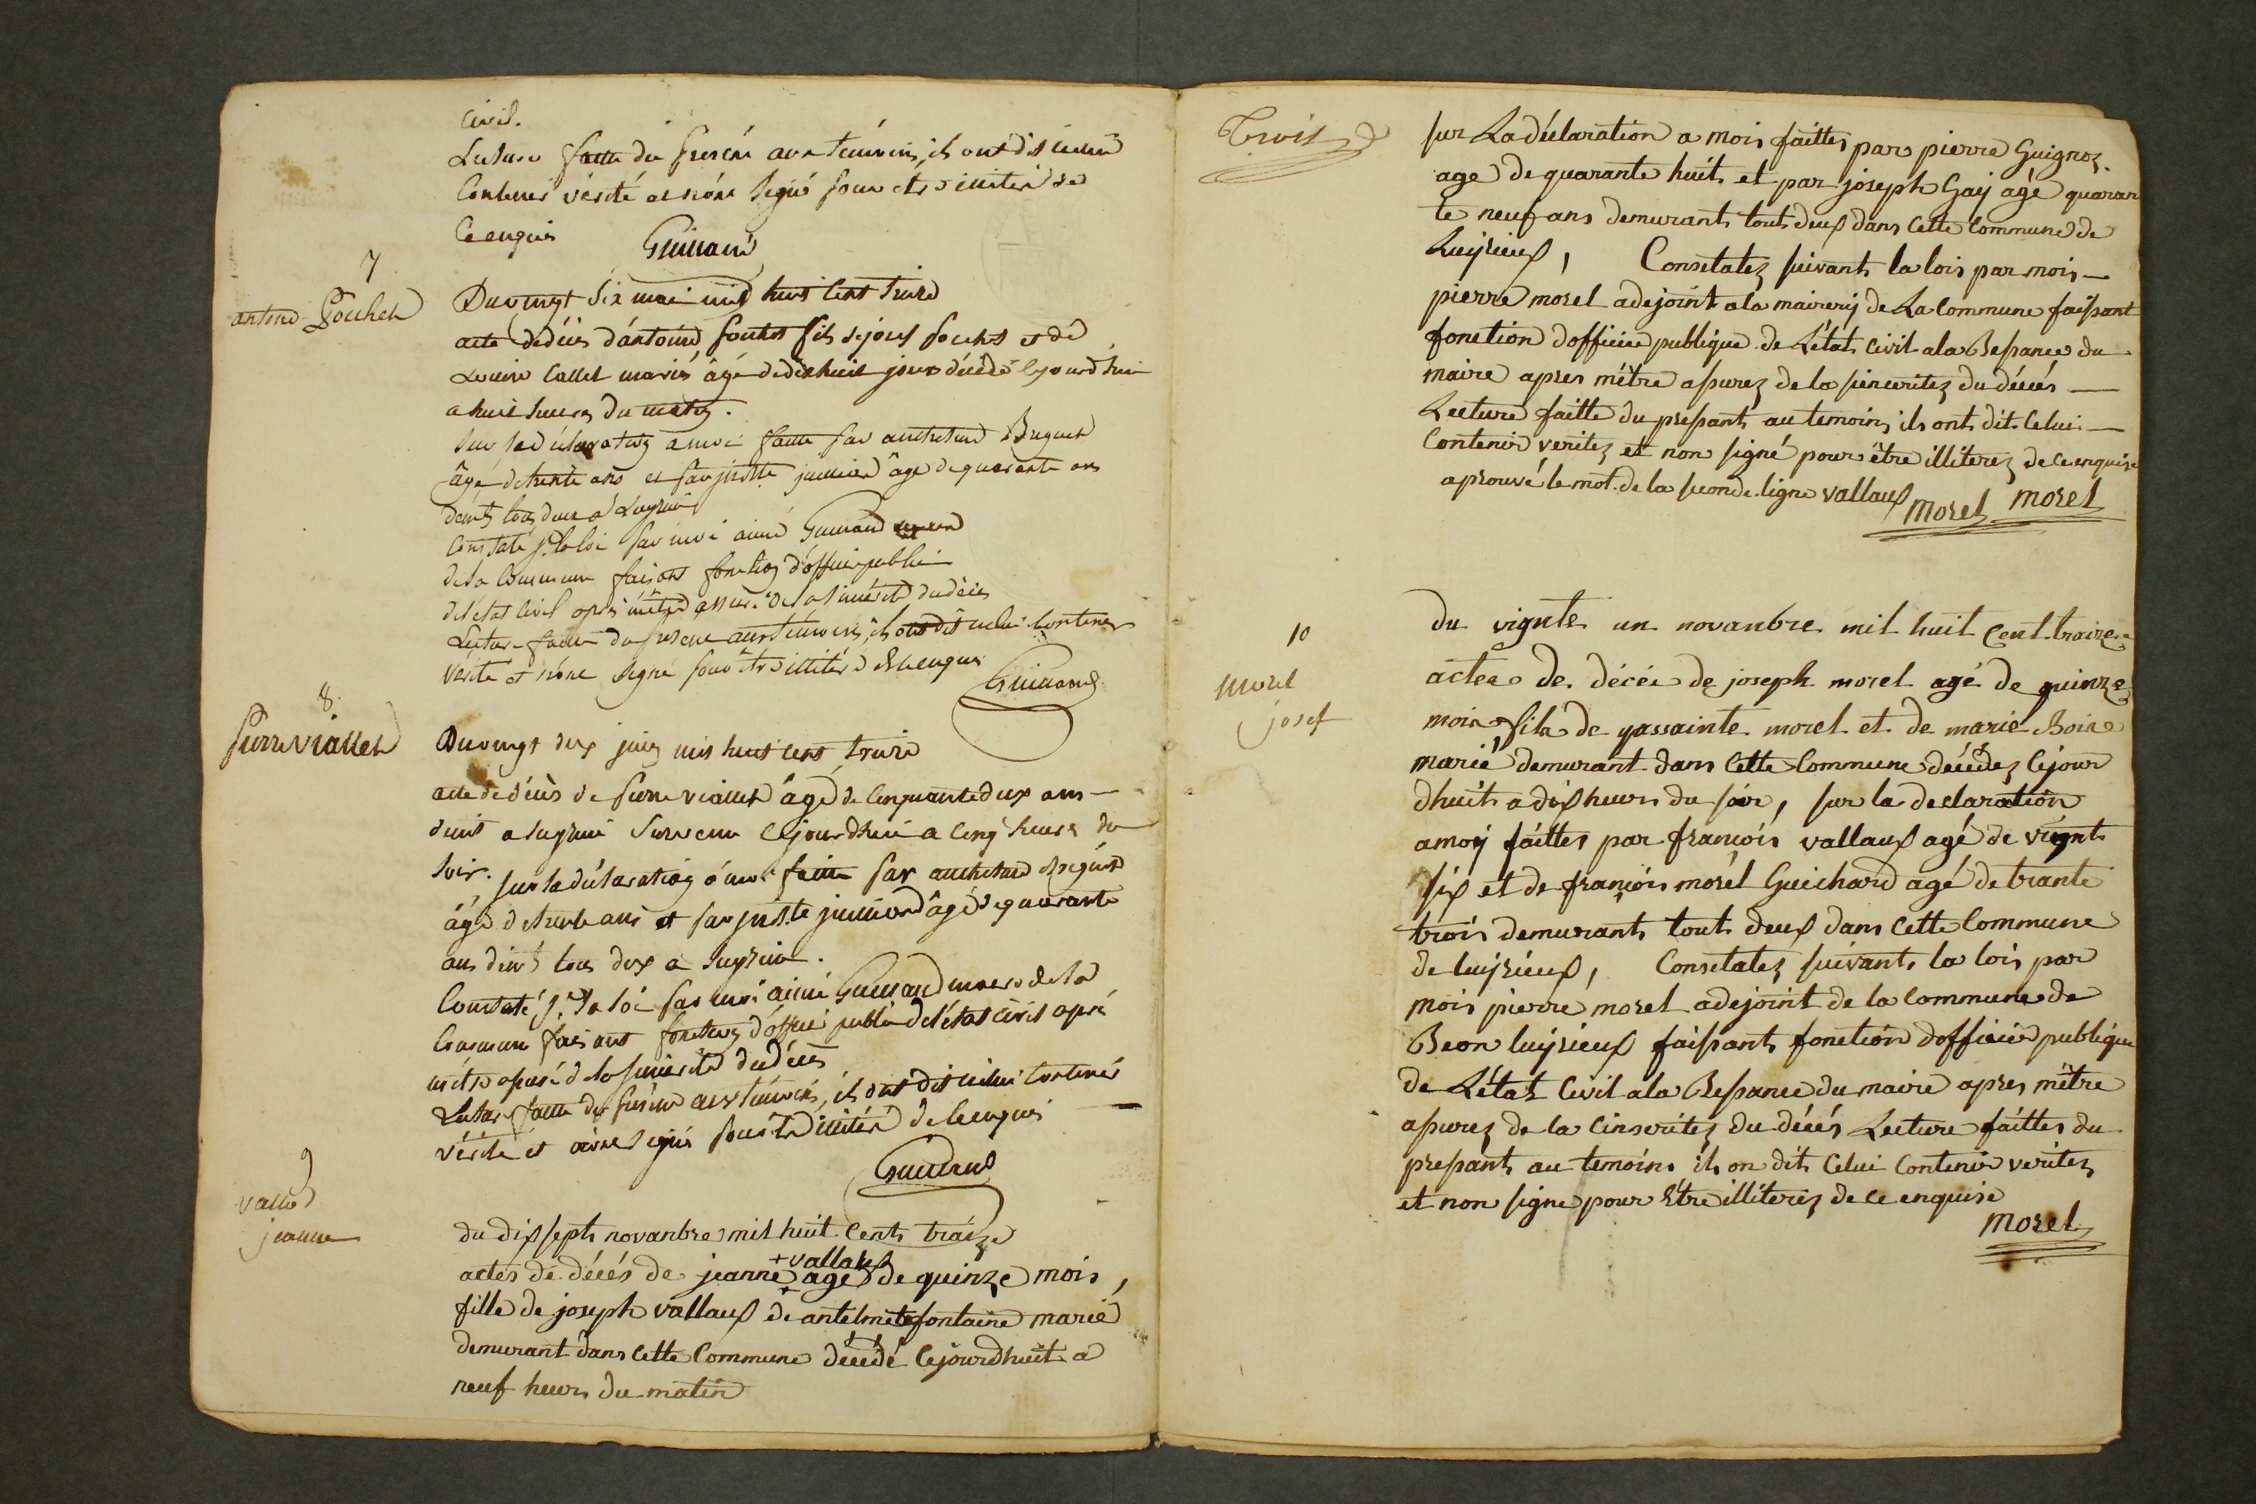 civil.
Lecture faitte du présen aux témoins, ils ont dit celui
Contenir vérité et n'ont signé pour être illitéré de
ce enquis
Guinard
7
antoine Pochet
Du vingt six mai mil huit cent treize
acte de décès d'antoine pochet fils de josef pochet et de
Louise Callet mariés âgé de dix huit jour décédé ce jourd'hui
a huit heures du matin.
Sur la déclaration a moi faitte par anthelme Buguet
âgé de trente ans et par juste jumieu âgé de quarante ans
demts tous deux a Luyrieu
Constaté st la loi par moi aimé Guinard maire
de la Commune faisant fonction d'officier public
de l'état civil après m'être assuré de la sincérité du décès
Lecture faitte du présent aux témoins, ils ont dit celui contenir
vérité et n'ont signé pour être illitéré de ce enquis
Guinard
8.
pierre viallet
Du vingt deux juin mil huit cent treize
acte de décès de pierre viallet âgé de cinquante deux ans —
demt a luyrieu survenu ce jourdhui a cinq heures du
soir. sur la déclaration à moi faitte par anthelme Buguet
âgé de trente ans et par juste jumieu âgé de quarante
ans demts tous deux a luyrieu.
Constaté st la loi par moi aimé Guinard maire de la
Commune faisant fonction d'officié public de l'état civil après
m'être assuré de la sincérité du décès
Lecture faitte du présent aux témoins, ils ont dit celui contenir
vérité et n'ont signé pour être illitéré de ce enquis —
Guinard
9
vallod
jeanne
du dix sept novanbre mil huit cent traize
+ vallaux
actes de décés de jeanne agé de quinze mois,
fille de joseph vallaux de antelmete fontaine marié
demurant dans cette Commune décédé cejourdhuit a
neuf heurs du matin
Trois
sur La déclaration a mois faittes par pierre Guignoz
age de quarante huit et par joseph Gay agé quaran
te neuf ans demurant tout deux dans Cette Commune de
Luijrieux, Constatez suivant la lois par mois —
pierre morel adejoint a la mairerij de La Commune faisant
fonction dofficier publique de L'état Civil a la Bessance du
maire apres m'être assurez de la sinceritez du décés —
Lecture faitte du pressant au temoins ils ont dit Celui —
Contenir veritez et non signé pour être illiterez de ce enquise
aprouvé le mot de la seconde ligne vallaux
Morel morel
10
morel
josef
du vignte un novanbre mil huit cent traize
actee de décée de joseph morel agé de quinze
mois fils de yassainte morel et de marie Boire
marié demurant dans Cette Commune décédez Cejour
dhuit a dix heurs du soir, sur la declaration
amoij faittes par françois vallaux agé de vignt
six et de françois morel Guichard agé de trante
trois demurant tout deux dans Cette Commune
de luijrieux, Constatez suivant la lois par
mois pierre morel adejoint de la Commune de
Beon luijrieux faissant fonction dofficier publique
de L'état Civil a la Bessance du maire apres m'être
assurez de la Cinseritez du décés Lecture faittes du
pressant au temoins ils on dit Celui Contenir veritez
et non signe pour Etre illiterez de ce enquise
morel